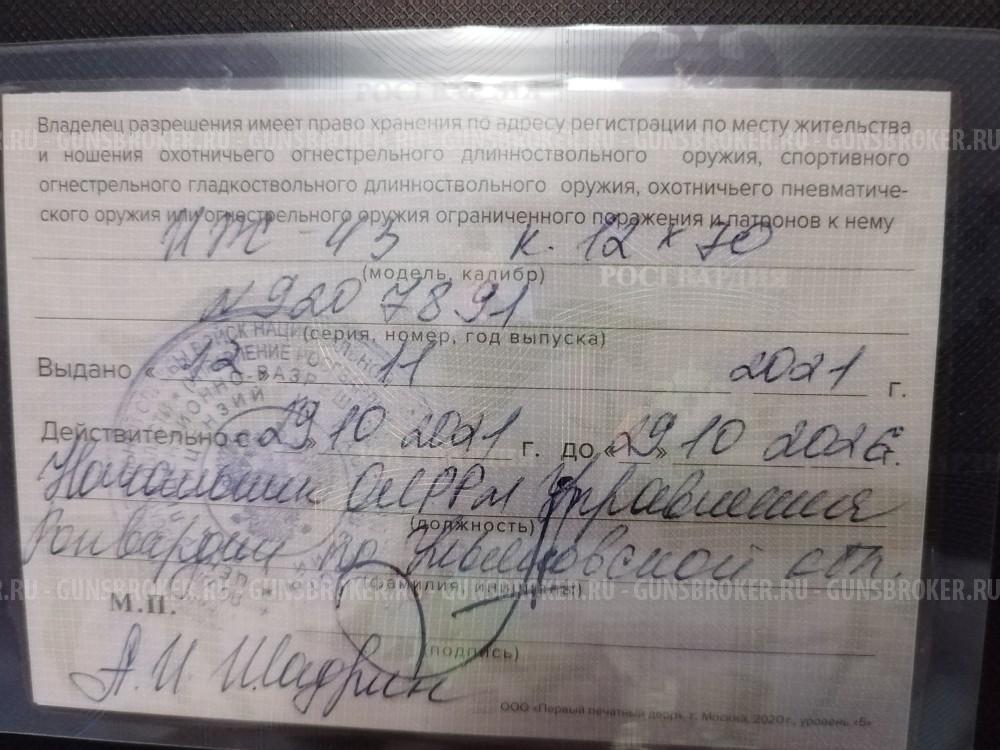 РОСГВАРДИЯ
Владелец разрешения имеет право хранения по адресу регистрации по месту жительства
и ношения охотничьего огнестрельного длинноствольного оружия, спортивного
огнестрельного гладкоствольного длинноствольного оружия, охотничьего пневматиче-
ского оружия или огнестрельного оружия ограниченного поражения и патронов к нему
ИЖ-43 к. 12×70
(модель, калибр)
РОСГВАРДИЯ
N 920 7891
(серия, номер, год выпуска)
Выдано « 12 » 11 2021 г.
Действительно с « 29 » 10 2021 г. до « 29 » 10 2026 г.
Начальник ОЛРРМ Управления
(должность)
Росгвардии по обл.
(фамилия, инициалы)
GUNSBROKER.RU - GUNSBROKER.RU - GUNSBROKER.RU - GUNSBROKER.RU
М.П.
(подпись)
А.И. Шадрин
ООО «Первый печатный двор», г. Москва, 2020 г., уровень «Б»